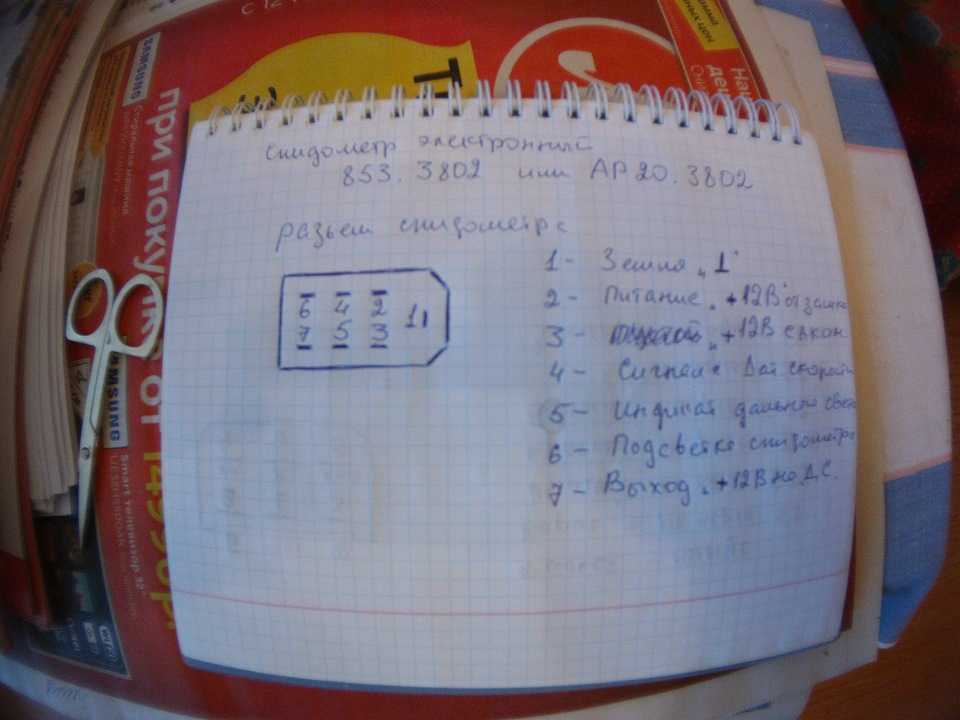 спидометр электронный
853.3802 или АР20.3802
разьем спидометра
6 4 2
7 5 3 1
1 - Земля „⊥"
2 - Питание „+12В" от
3 - „+12В с
4 - Сигнал с Дат скорости
5 - Индикат дальнего света
6 - Подсветка спидометра
7 - Выход „+12В на Д.С.
SAMSUNG
ПРИ ПОКУПКЕ ОТ
SAMSUNG
Smart телевизор 32"